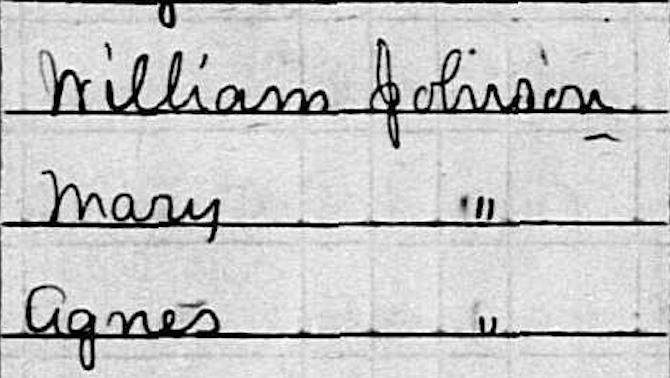 William Johnson
Mary "
Agnes "